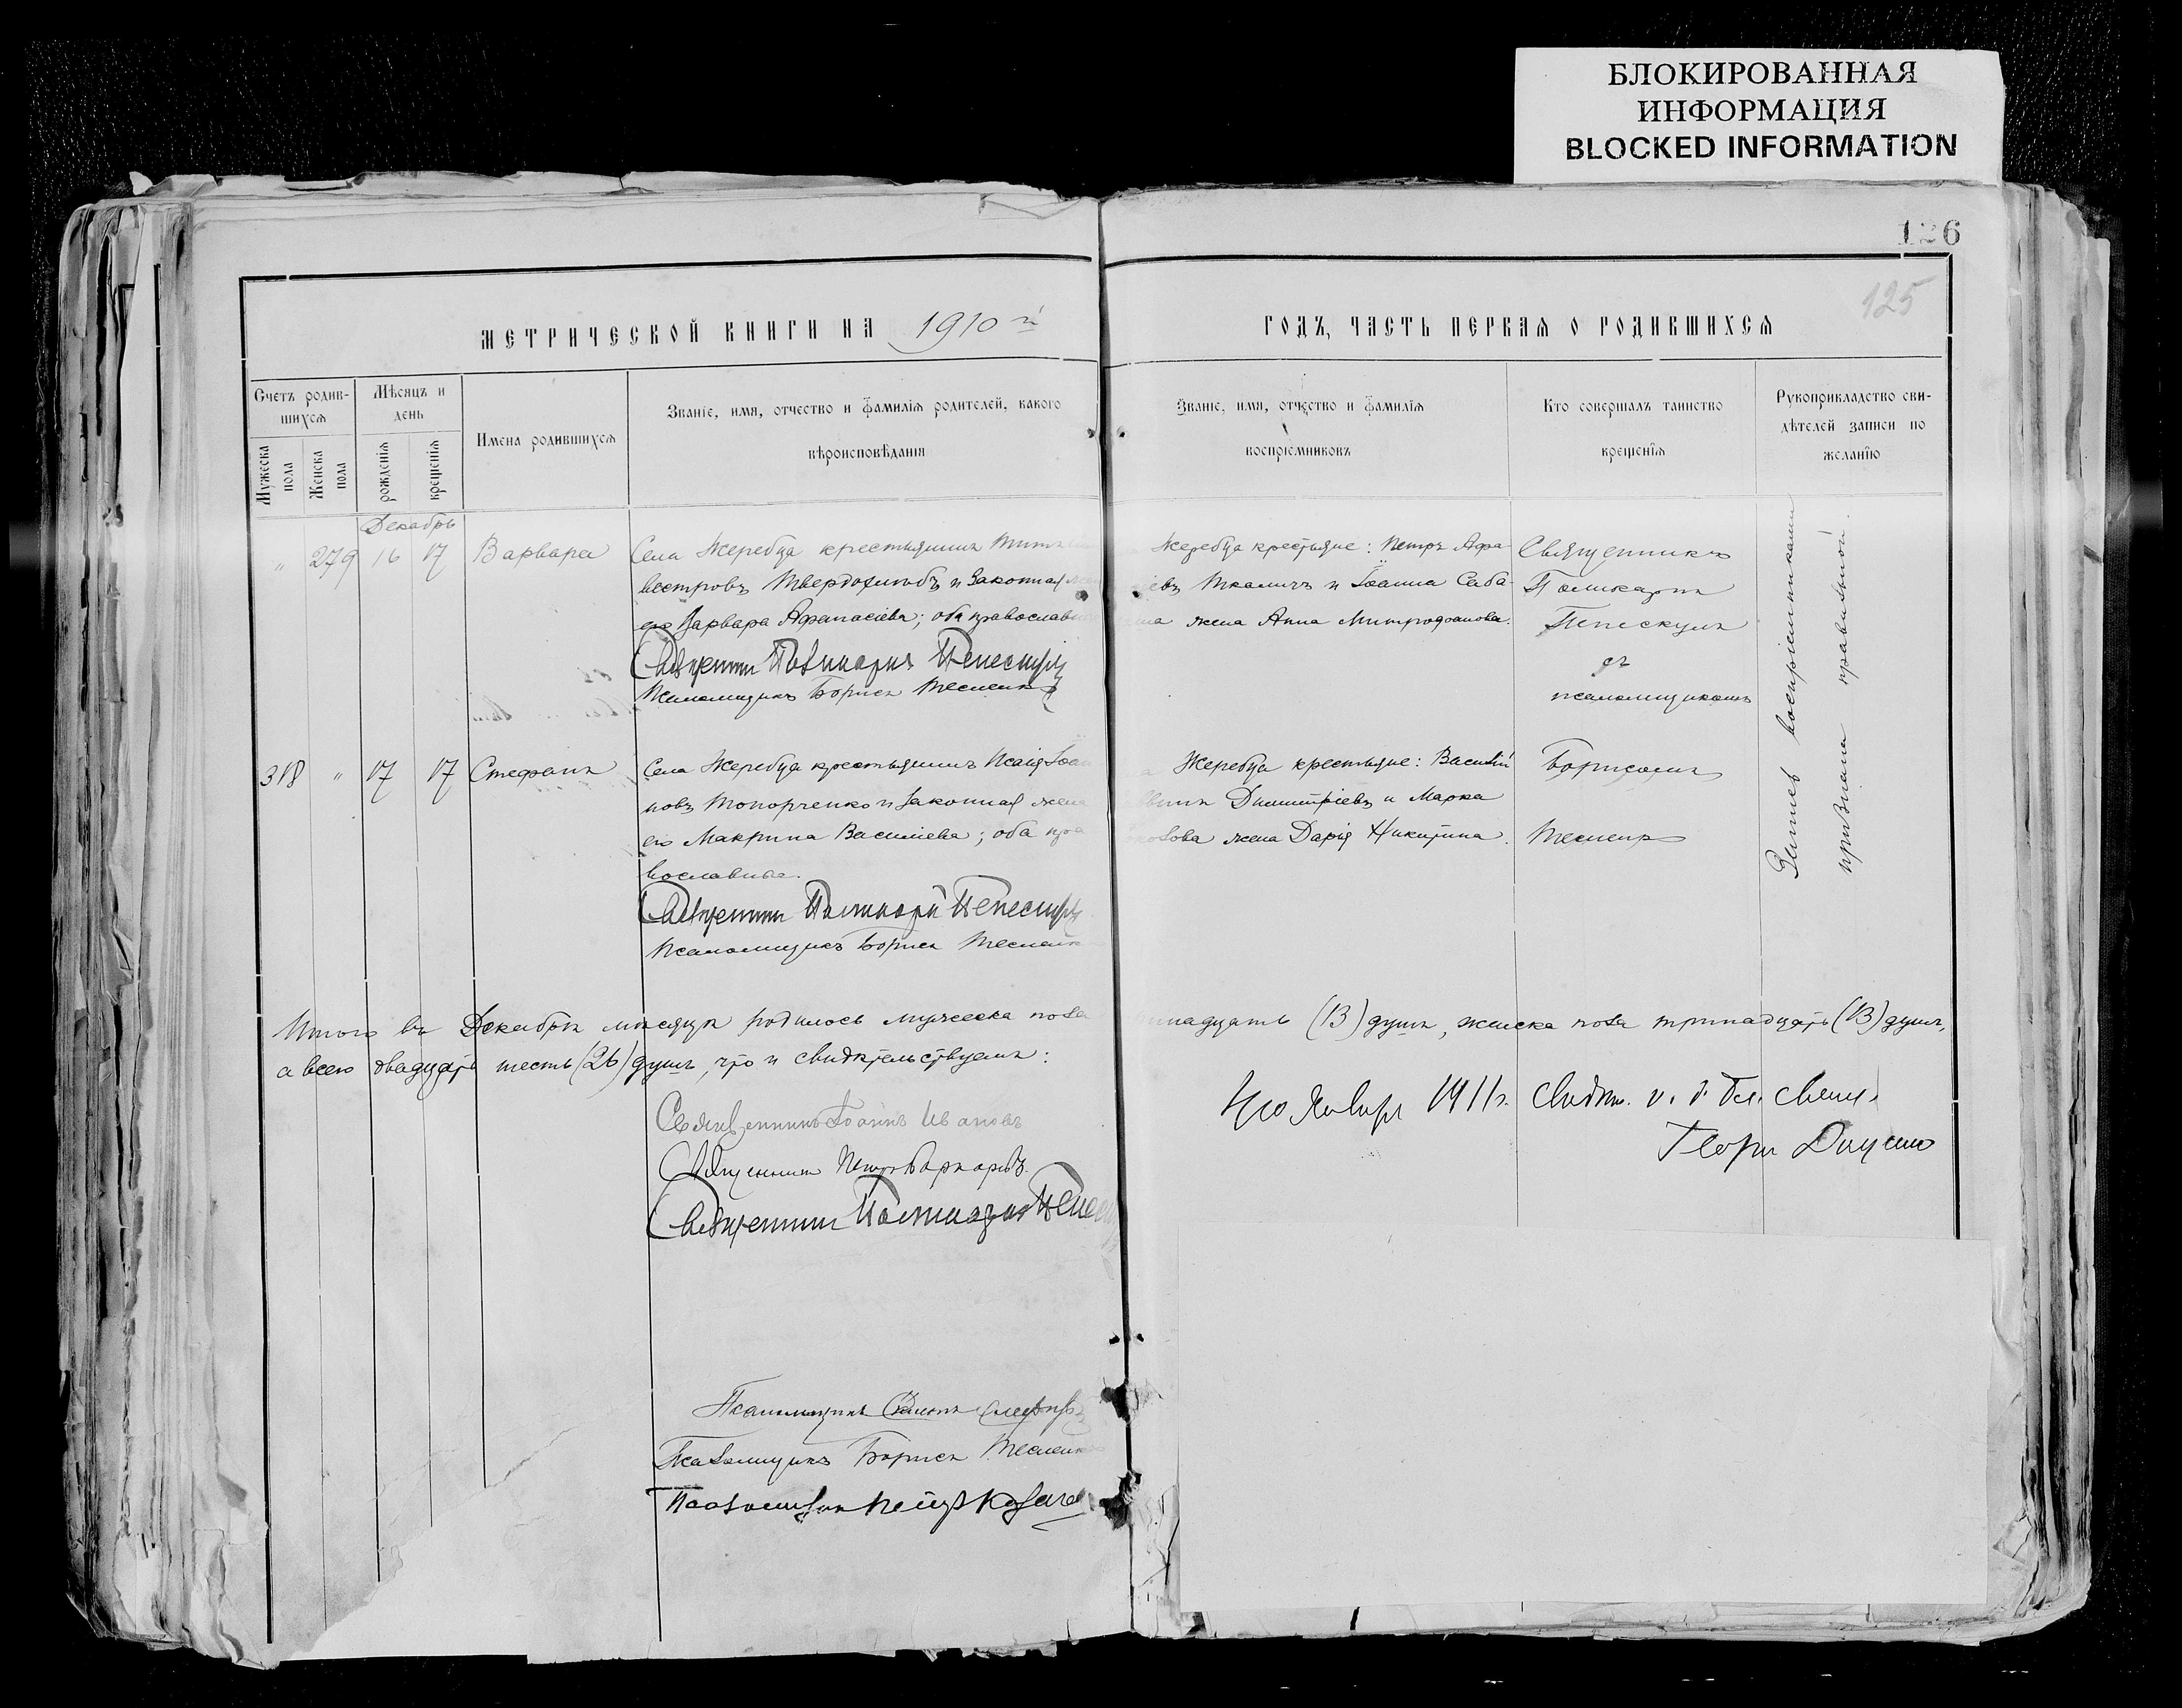 БЛОКИРОВАННАЯ
ИНФОРМАЦИЯ
BLOCKED INFORMATION
126
125
МЕТРИЧЕСКОЙ КНИГИ НА 1910й
ГОДЪ, ЧАСТЬ ПЕРВАЯ О РОДИВШИХСЯ
Счетъ родив-
шихся
Мужеска
пола
Женска
пола
Мѣсяцъ и
день
рожденія
крещенія
Имена родившихся
Званіе, имя, отчество и фамилія родителей, какого
вѣроисповѣданія
Званіе, имя, отчество и фамилія
воспріемниковъ
Кто совершалъ таинство
крещенія
Рукоприкладство сви-
дѣтелей записи по
желанію
Декабрь
" 279 16 17 Варвара
Села Жеребца крестьянинъ Титъ
вестровъ Твердохлѣбъ и законная
его Варвара Афанасіева; оба православ
Священникъ Поликарпъ Пепескулъ
Псаломщикъ Борисъ Тесленко
Жеребца крестьяне: Петръ Афа-
іевъ Ткаличъ и Іоанна Саба-
жена Анна Митрофанова.
Священникъ
Поликарпъ
Пепескулъ
съ
псаломщикомъ
Борисомъ
Тесленко
318 " 17 17 Стефанъ
Села Жеребца крестьянинъ Исаія Іоан
новъ Топорченко и законная жена
его Макрина Василіева; оба пра
вославные.
Священникъ Поликарпъ Пепескулъ
Псаломщикъ Борисъ Тесленко
Жеребца крестьяне: Василій
Димитріевъ и Марка
жена Дарія Никитина.
воспріемниками
признана правильной.
Итого въ Декабрѣ мѣсяцѣ родилось мужеска пола
надцать (13) душъ, женска пола тринадцать (13) душъ,
а всего двадцать шесть (26) душъ, что и свидѣтельствуемъ:
Священникъ Іоаннъ Ивановъ
Священникъ Петръ
Священникъ Поликарпъ Пепес
Января 1911г.
Псаломщикъ
Псаломщикъ Борисъ Тесленко
Псаломщикъ Петръ